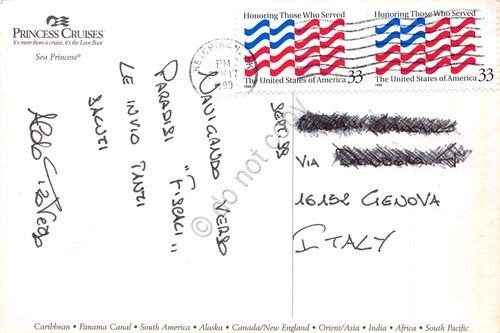 PRINCESS CRUISES
It's more than a cruise, it's the Love Boat
Sea Princess®
Honoring Those Who Served
The United States of America 33
1999
Honoring Those Who Served
The United States of America 33
1999
PM
1999
NAVIGANDO VERSO
PARADISI "FISCALI"
LE INVIO TANTI
SALUTI
Aldo
SETT 99
VIA
16152 GENOVA
ITALY
© do not copy
Caribbean • Panama Canal • South America • Alaska • Canada/New England • Orient/Asia • India • Africa • South Pacific